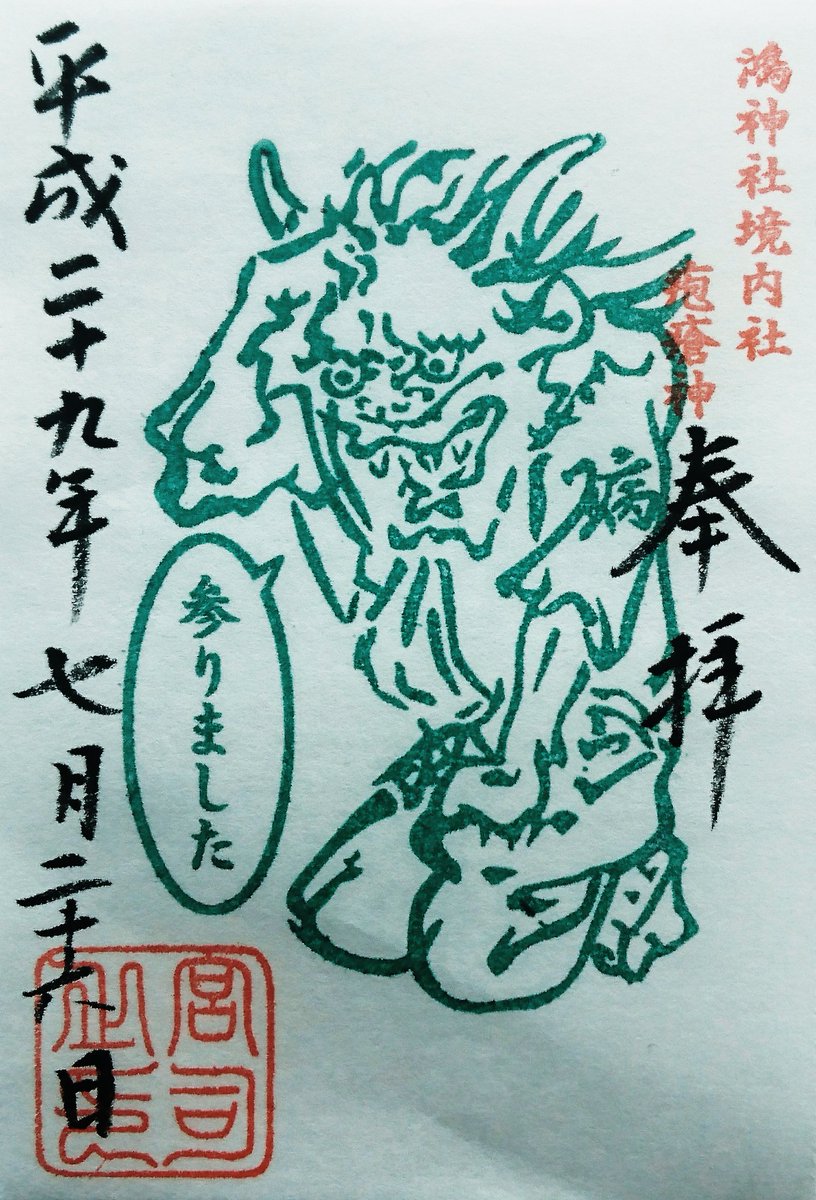 鴻神社境内社
疱瘡神
奉拝
病
参りました
平成二十九年七月二十六日
宮司